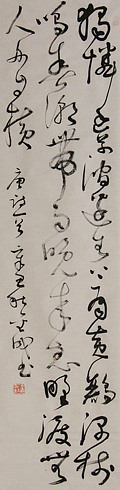 獨憐幽草澗邊生上有黃鸝深樹
鳴春潮帶雨晚來急野渡無
人舟自橫
唐詩一首